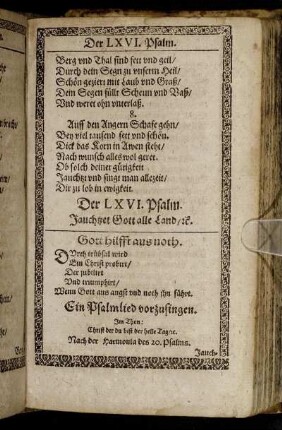 Der LXVI. Psalm.
Berg vnd Thal sind fett vnd geil/
Durch dein Segn zu vnserm Heil/
Schön geziert mit Laub vnd Graß/
Dein Segen füllt Scheun vnd Vaß/
Vnd weret ohn vnterlaß.
8.
Auff den Angern Schafe gehn/
Bey viel tausend fett vnd schön.
Dick das Korn in Awen steht/
Nach wunsch alles wol geret.
Ob solch deiner gütigkeit
Jauchtzt vnd singt man allezeit/
Dir zu lob in ewigkeit.
Der LXVI. Psalm.
Jauchtzet Gott alle Land/ꝛc.
Gott hilfft aus noth.
DVrch trübsal wird
Ein Christ probirt/
Der jubilirt
Vnd triumphirt/
Wenn Gott aus angst vnd noth jhn führt.
Ein Psalmlied vorzusingen.
Im Thon:
Christ der du bist der helle Tag/ꝛc.
Nach der Harmonia des 20. Psalms.
Jauch-